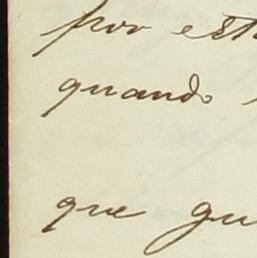 por est
quando
que gu